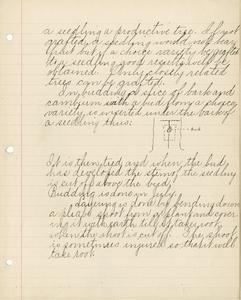 a seedling a productive tree. If not
grafted, a seedling would not bear
fruit but if a choice variety be grafted
to a seedling good results will be
obtained. Only closely related
trees can be grafted.
In budding a slice of bark and
cambium with a bud from a choice
variety is inserted under the bark of
a seedling thus:
It is then tied and when the bud
has developed the stem of the seedling
is cut off above the bud.
Budding is done in July.
Layering is done by bending down
a pliable shoot from a plant and cover-
ing it with earth till it takes root,
when the shoot is cut off. The shoot
is sometimes injured so that it will
take root.